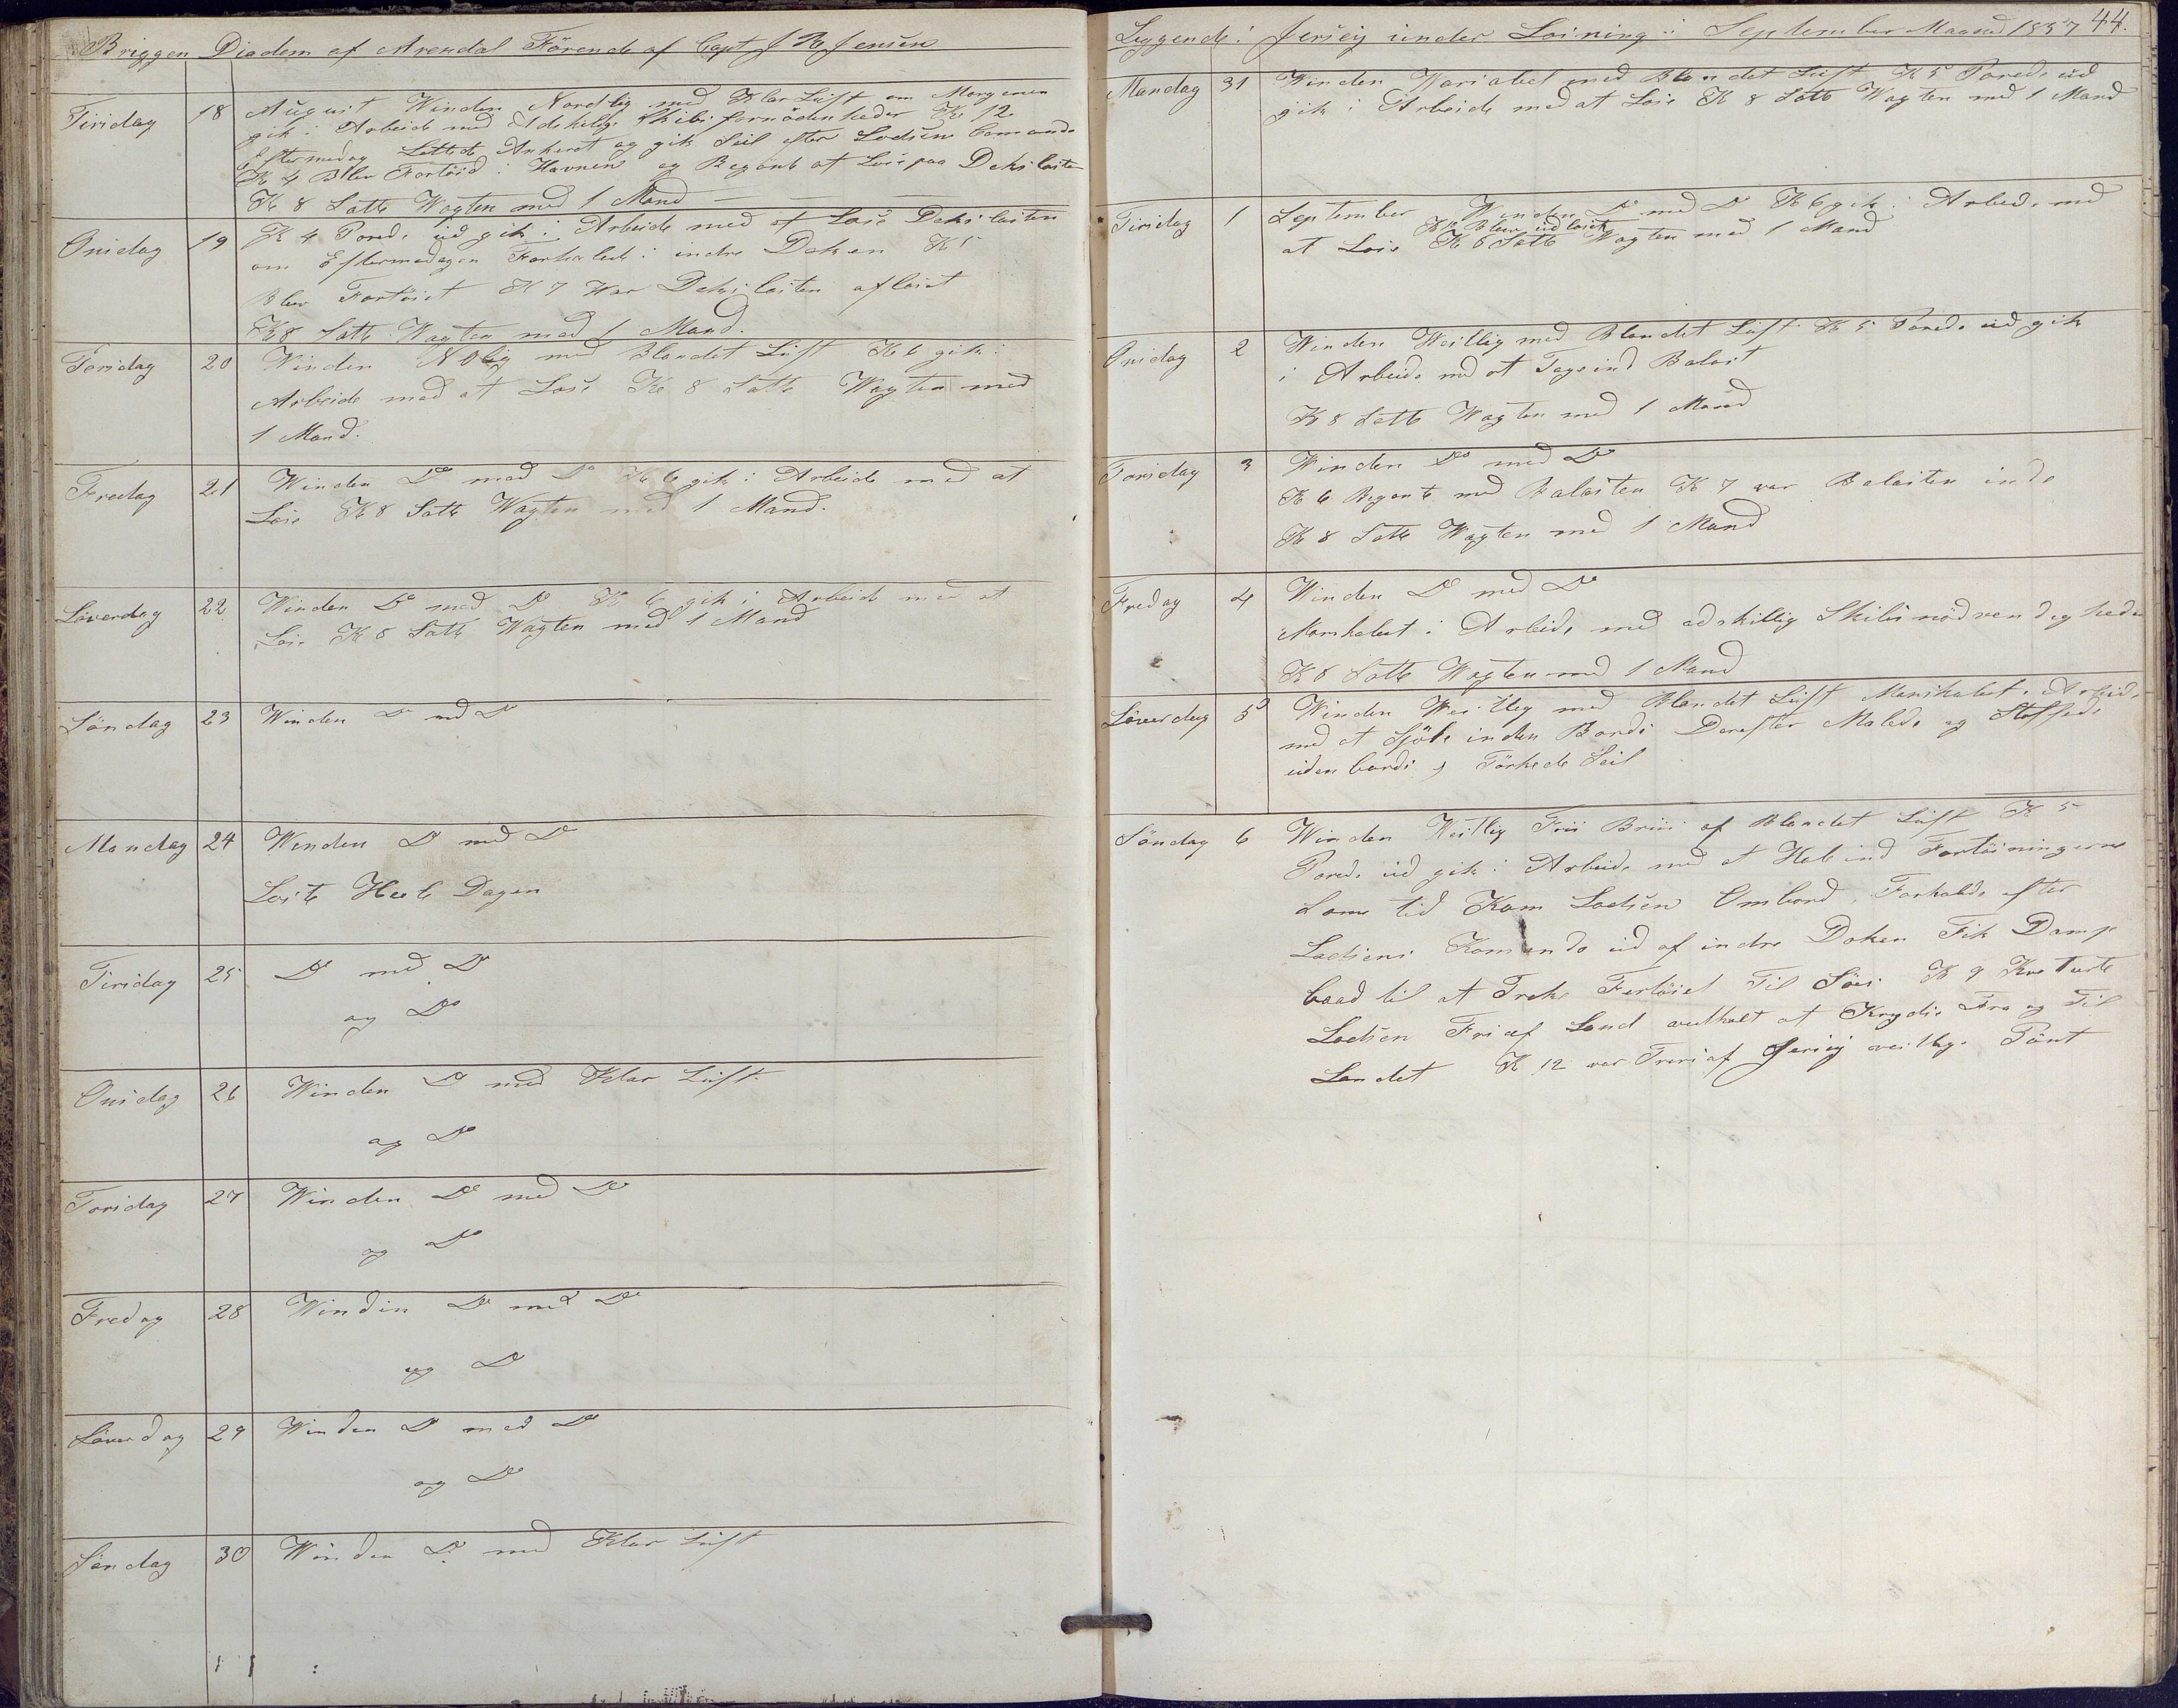 Briggen Diadem af Arendal Förende af Capt J R Jensen
Tirsdag 18 August Winden Nordlig med Klar Luft om Morgenen
gik i Arbeide med Adskelige Skibs fornödenheder Kl 12
Eftermedag Lettede Ankeret og gik Seil efter Lodsens Comando
Kl 4 Blev Fortöid i Havnen og Begönte at Lose paa Dekslasten
Kl 8 Satte Wagten med 1 Mand
Onsdag 19 Kl 4 Pored. ud gik i Arbeide med at Lose Dekslasten
om Eftermedagen Forhalede i indre Doken Kl 5
Blev Fortöiet Kl 7 War Dekslasten aflost
Kl 8 Satte Wagten med 1 Mand.
Torsdag 20 Winden NOlig med Blandet Luft Kl 6 gik i
Arbeide med at Lose Kl 8 Satte Wagten med
1 Mand.
Fredag 21 Winden Do med Do Kl 6 gik i Arbeide med at
Lose Kl 8 Satte Wagten med 1 Mand.
Löverdag 22 Winden Do med Do Kl 6 gik i Arbeide med at
Lose Kl 8 Satte Wagten med 1 Mand
Söndag 23 Winden Do med Do
Mandag 24 Winden Do med Do
Loste Heele Dagen
Tirsdag 25 Do med Do
og Do
Onsdag 26 Winden Do med Klar Luft
og Do
Torsdag 27 Winden Do med Do
og Do
Fredag 28 Winden Do med Do
og Do
Löverdag 29 Winden Do med Do
og Do
Söndag 30 Winden Do med Klar Luft
Leggende i Jersey under Losning i September Maaned 1857 44.
Mandag 31 Winden Wariabel med Blandet Luft Kl 5 Pored. ud
gik i Arbeide med at Lose Kl 8 Satte Wagten med 1 Mand
Tirsdag 1 September Winden Do med Do Kl 6 gik i Arbeid. med
Blev udloset
at Lose Kl 8 Satte Wagten med 1 Mand
Onsdag 2 Winden Westlig med Blandet Luft Kl 5 Pored. ud gik
i Arbeide med at Tage ind Balast
Kl 8 Satte Wagten med 1 Mand
Torsdag 3 Winden Do med Do
Kl 6 Begonte med Balasten Kl 7 war Balasten inde
Kl 8 Satte Wagten med 1 Mand
Fredag 4 Winden Do med Do
Manskabet i Arbeide med adskillig Skibsnödvendigheder
Kl 8 Satte Wagten med 1 Mand
Löverdag 5 Winden Westlig med Blandet Luft Manskabet i Arbeide
med at Spöle inden Bords Derefter Malede og Staffede
uden bords, Törkede Seil
Söndag 6 Winden Westlig Friis Briis af Blandet Luft Kl 5
Pored. ud gik i Arbeide med at Hale ind Fortöiningerne
Same tid Kom Lodsen Ombord, Forhalede efter
Lodsens Komando ud af indre Doken Fik Damp
baad til at Treke Fertöiet Til Söes Kl 9
Lodsen Fri af Land at Krydse Fra og Til
Landet Kl 12 war Tvers af Jersey westlige Pönt